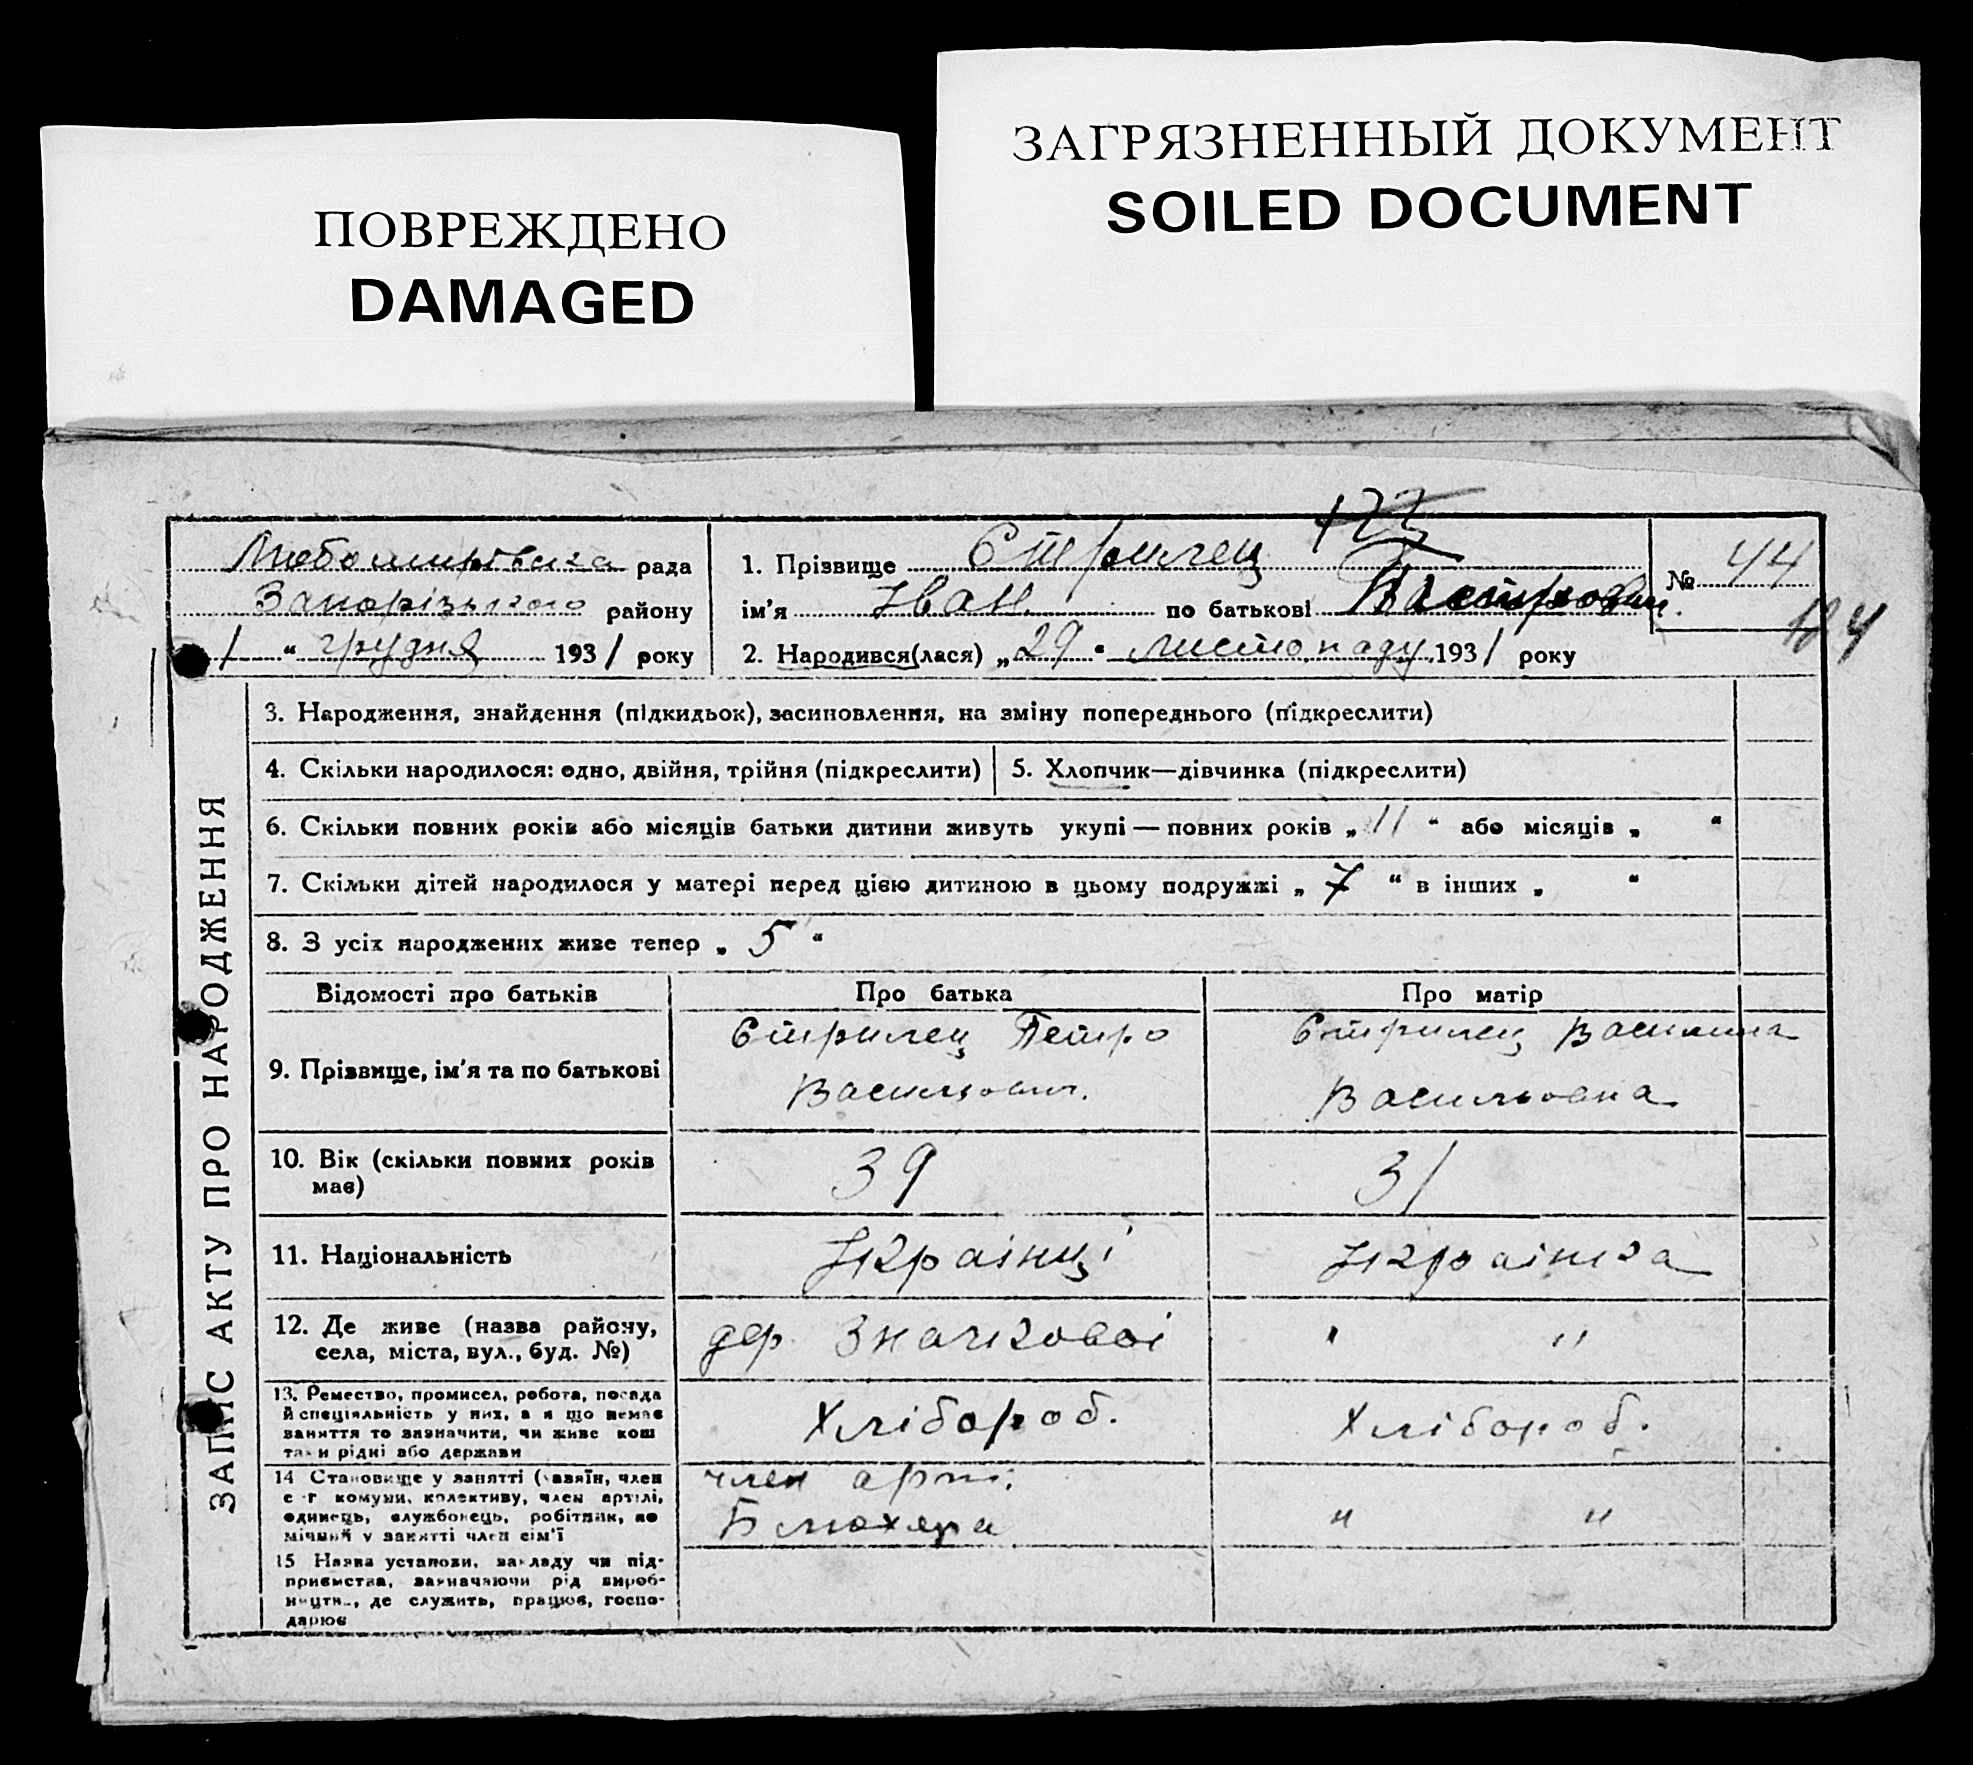 ПОВРЕЖДЕНО
DAMAGED
ЗАГРЯЗНЕННЫЙ ДОКУМЕНТ
SOILED DOCUMENT
Любомирівска рада
Запорізького району
1 " грудня 1931 року
173
1. Прізвище Стрилец
ім'я Іван по батькові Петрович
2. Народився(лася) „29" листопаду 1931 року
№ 44
ЗАПИС АКТУ ПРО НАРОДЖЕННЯ
3. Народження, знайдення (підкидьок), засиновлення, на зміну попереднього (підкреслити)
4. Скільки народилося: одно, двійня, трійня (підкреслити)
5. Хлопчик—дівчинка (підкреслити)
6. Скільки повних років або місяців батьки дитини живуть укупі — повних років „ 11 " або місяців „ "
7. Скільки дітей народилося у матері перед цією дитиною в цьому подружжі „ 7 " в інших „ "
8. З усіх народжених живе тепер „ 5 "
Відомості про батьків
Про батька
Про матір
9. Прізвище, ім'я та по батькові
Стрилец Петро
Васильович.
Стрилец Василина
Васильовна
10. Вік (скільки повних років
має)
39
31
11. Національність
Українці
Українка
12. Де живе (назва району,
села, міста, вул., буд. №)
дер Значкової
" "
13. Ремество, промисел, робота, посада
й спеціяльність у них, а я що немає
заняття то зазначити, чи живе кош
тами рідні або держави
Хлібороб.
Хлібороб.
14 Становище у занятті (хазяїн, член
с-г комуни, колективу, член артілі,
одинець, службовець, робітник, по
мічний у занятті член сім'ї
член арті.
Блюхера
" "
15 Назва установи, закладу чи під-
приємства, зазначаючи рід вироб-
ництв., де служить, працює, госпо-
дарює